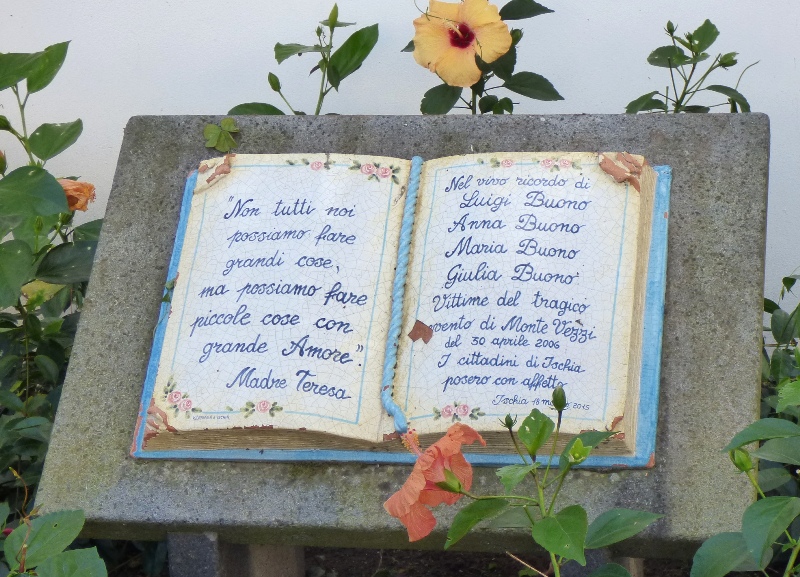 "Non tutti noi
possiamo fare
grandi cose,
ma possiamo fare
piccole cose con
grande Amore".
Madre Teresa
Nel vivo ricordo di
Luigi Buono
Anna Buono
Maria Buono
Giulia Buono
Vittime del tragico
evento di Monte Vezzi
del 30 aprile 2006
I cittadini di Ischia
posero con affetto
Ischia 18 2015